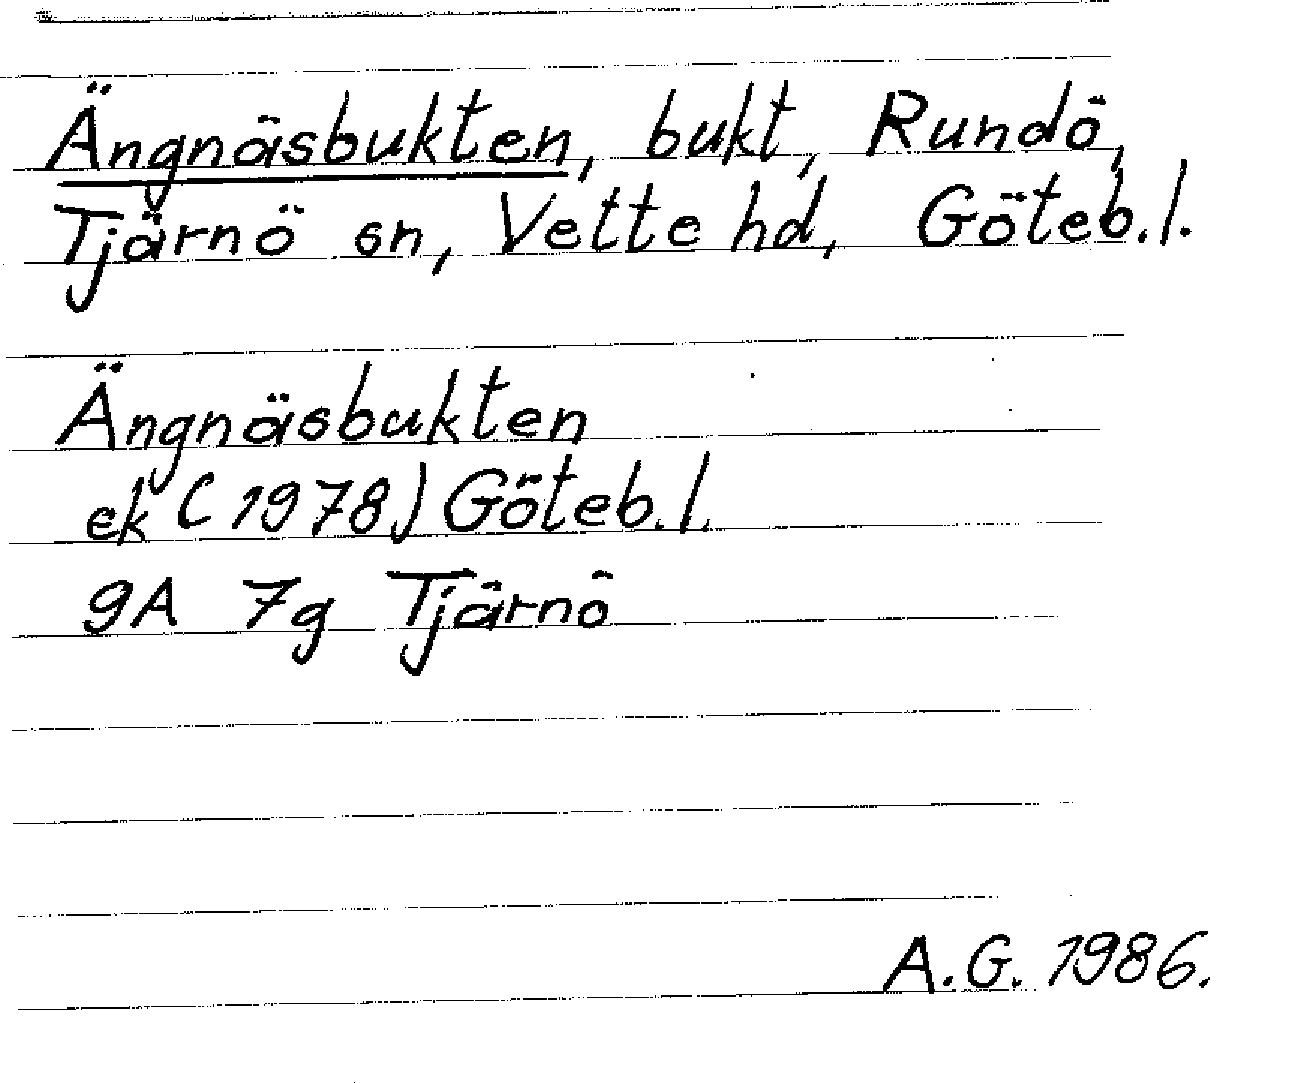 Ängnäsbukten, bukt, Rundö,
Tjärnö sn, Vette hd, Göteb.l.
Ängnäsbukten
ek (1978) Göteb.l.
9A 7g Tjärnö
A.G. 1986.